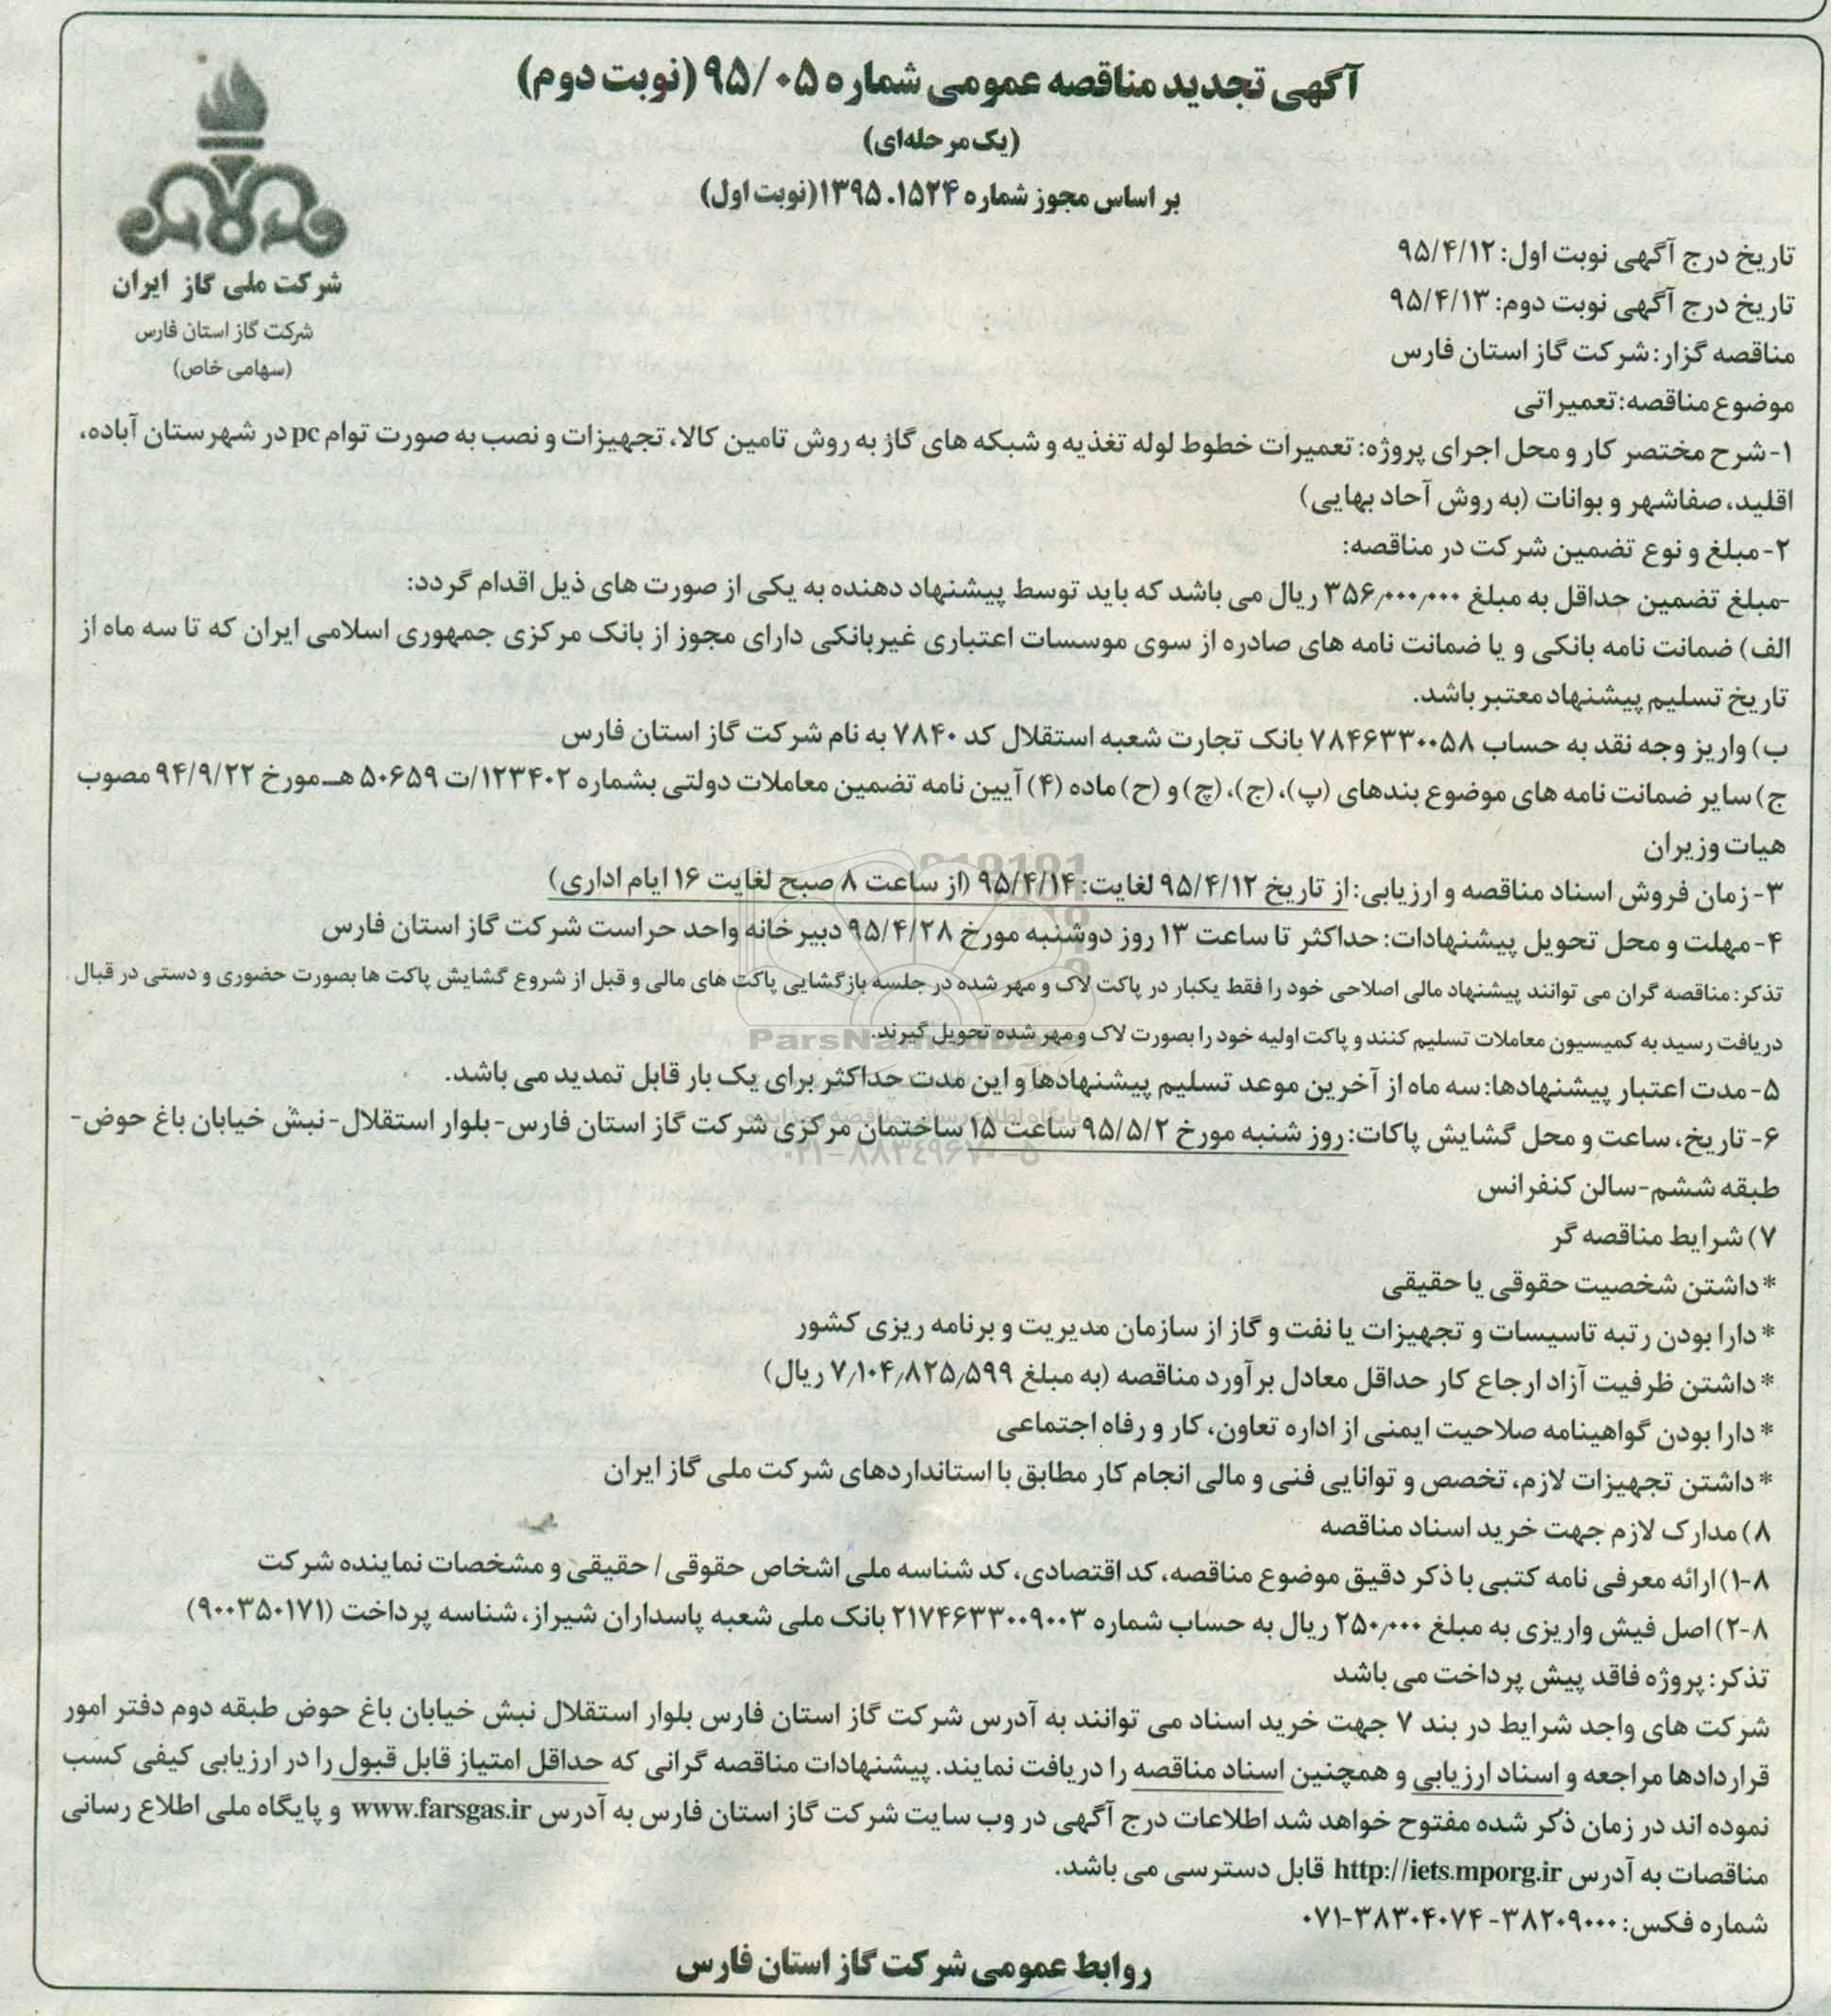 آگهی تجدید مناقصه عمومی شماره ۹۵/۰۵ (نوبت دوم)
(یک مرحله‌ای)
بر اساس مجوز شماره ۱۳۹۵.۱۵۲۴(نوبت اول)
شرکت ملی گاز ایران
شرکت گاز استان فارس
(سهامی خاص)
تاریخ درج آگهی نوبت اول: ۹۵/۴/۱۲
تاریخ درج آگهی نوبت دوم: ۹۵/۴/۱۳
مناقصه گزار: شرکت گاز استان فارس
موضوع مناقصه: تعمیراتی
۱- شرح مختصر کار و محل اجرای پروژه: تعمیرات خطوط لوله تغذیه و شبکه های گاز به روش تامین کالا، تجهیزات و نصب به صورت توام pc در شهرستان آباده،
اقلید، صفاشهر و بوانات (به روش آحاد بهایی)
۲- مبلغ و نوع تضمین شرکت در مناقصه:
-مبلغ تضمین حداقل به مبلغ ۳۵۶٫۰۰۰٫۰۰۰ ریال می باشد که باید توسط پیشنهاد دهنده به یکی از صورت های ذیل اقدام گردد:
الف) ضمانت نامه بانکی و یا ضمانت نامه های صادره از سوی موسسات اعتباری غیربانکی دارای مجوز از بانک مرکزی جمهوری اسلامی ایران که تا سه ماه از
تاریخ تسلیم پیشنهاد معتبر باشد.
ب) واریز وجه نقد به حساب ۷۸۴۶۳۳۰۰۵۸ بانک تجارت شعبه استقلال کد ۷۸۴۰ به نام شرکت گاز استان فارس
ج) سایر ضمانت نامه های موضوع بندهای (پ)، (ج)، (چ) و (ح) ماده (۴) آیین نامه تضمین معاملات دولتی بشماره ۱۲۳۴۰۲/ت ۵۰۶۵۹ هـ مورخ ۹۴/۹/۲۲ مصوب
هیات وزیران
۳- زمان فروش اسناد مناقصه و ارزیابی: از تاریخ ۹۵/۴/۱۲ لغایت: ۹۵/۴/۱۴ (از ساعت ۸ صبح لغایت ۱۶ ایام اداری)
۴- مهلت و محل تحویل پیشنهادات: حداکثر تا ساعت ۱۳ روز دوشنبه مورخ ۹۵/۴/۲۸ دبیرخانه واحد حراست شرکت گاز استان فارس
تذکر: مناقصه گران می توانند پیشنهاد مالی اصلاحی خود را فقط یکبار در پاکت لاک و مهر شده در جلسه بازگشایی پاکت های مالی و قبل از شروع گشایش پاکت ها بصورت حضوری و دستی در قبال
دریافت رسید به کمیسیون معاملات تسلیم کنند و پاکت اولیه خود را بصورت لاک و مهر شده تحویل گیرند.
ParsNamadData
۵- مدت اعتبار پیشنهادها: سه ماه از آخرین موعد تسلیم پیشنهادها و این مدت حداکثر برای یک بار قابل تمدید می باشد.
۶- تاریخ، ساعت و محل گشایش پاکات: روز شنبه مورخ ۹۵/۵/۲ ساعت ۱۵ ساختمان مرکزی شرکت گاز استان فارس- بلوار استقلال- نبش خیابان باغ حوض-
۰۲۱-۸۸۳۴۹۶۷۰-۵
طبقه ششم-سالن کنفرانس
۷) شرایط مناقصه گر
*داشتن شخصیت حقوقی یا حقیقی
* دارا بودن رتبه تاسیسات و تجهیزات یا نفت و گاز از سازمان مدیریت و برنامه ریزی کشور
* داشتن ظرفیت آزاد ارجاع کار حداقل معادل برآورد مناقصه (به مبلغ ۷٫۱۰۴٫۸۲۵٫۵۹۹ ریال)
* دارا بودن گواهینامه صلاحیت ایمنی از اداره تعاون، کار و رفاه اجتماعی
* داشتن تجهیزات لازم، تخصص و توانایی فنی و مالی انجام کار مطابق با استانداردهای شرکت ملی گاز ایران
۸) مدارک لازم جهت خرید اسناد مناقصه
۸-۱) ارائه معرفی نامه کتبی با ذکر دقیق موضوع مناقصه، کد اقتصادی، کد شناسه ملی اشخاص حقوقی/ حقیقی و مشخصات نماینده شرکت
۸-۲) اصل فیش واریزی به مبلغ ۲۵۰٫۰۰۰ ریال به حساب شماره ۲۱۷۴۶۳۳۰۰۹۰۰۳ بانک ملی شعبه پاسداران شیراز، شناسه پرداخت (۹۰۰۳۵۰۱۷۱)
تذکر: پروژه فاقد پیش پرداخت می باشد
شرکت های واجد شرایط در بند ۷ جهت خرید اسناد می توانند به آدرس شرکت گاز استان فارس بلوار استقلال نبش خیابان باغ حوض طبقه دوم دفتر امور
قراردادها مراجعه و اسناد ارزیابی و همچنین اسناد مناقصه را دریافت نمایند. پیشنهادات مناقصه گرانی که حداقل امتیاز قابل قبول را در ارزیابی کیفی کسب
نموده اند در زمان ذکر شده مفتوح خواهد شد اطلاعات درج آگهی در وب سایت شرکت گاز استان فارس به آدرس www.farsgas.ir و پایگاه ملی اطلاع رسانی
مناقصات به آدرس http://iets.mporg.ir قابل دسترسی می باشد.
شماره فکس: ۳۸۲۰۹۰۰۰- ۰۷۱-۳۸۳۰۴۰۷۴
روابط عمومی شرکت گاز استان فارس